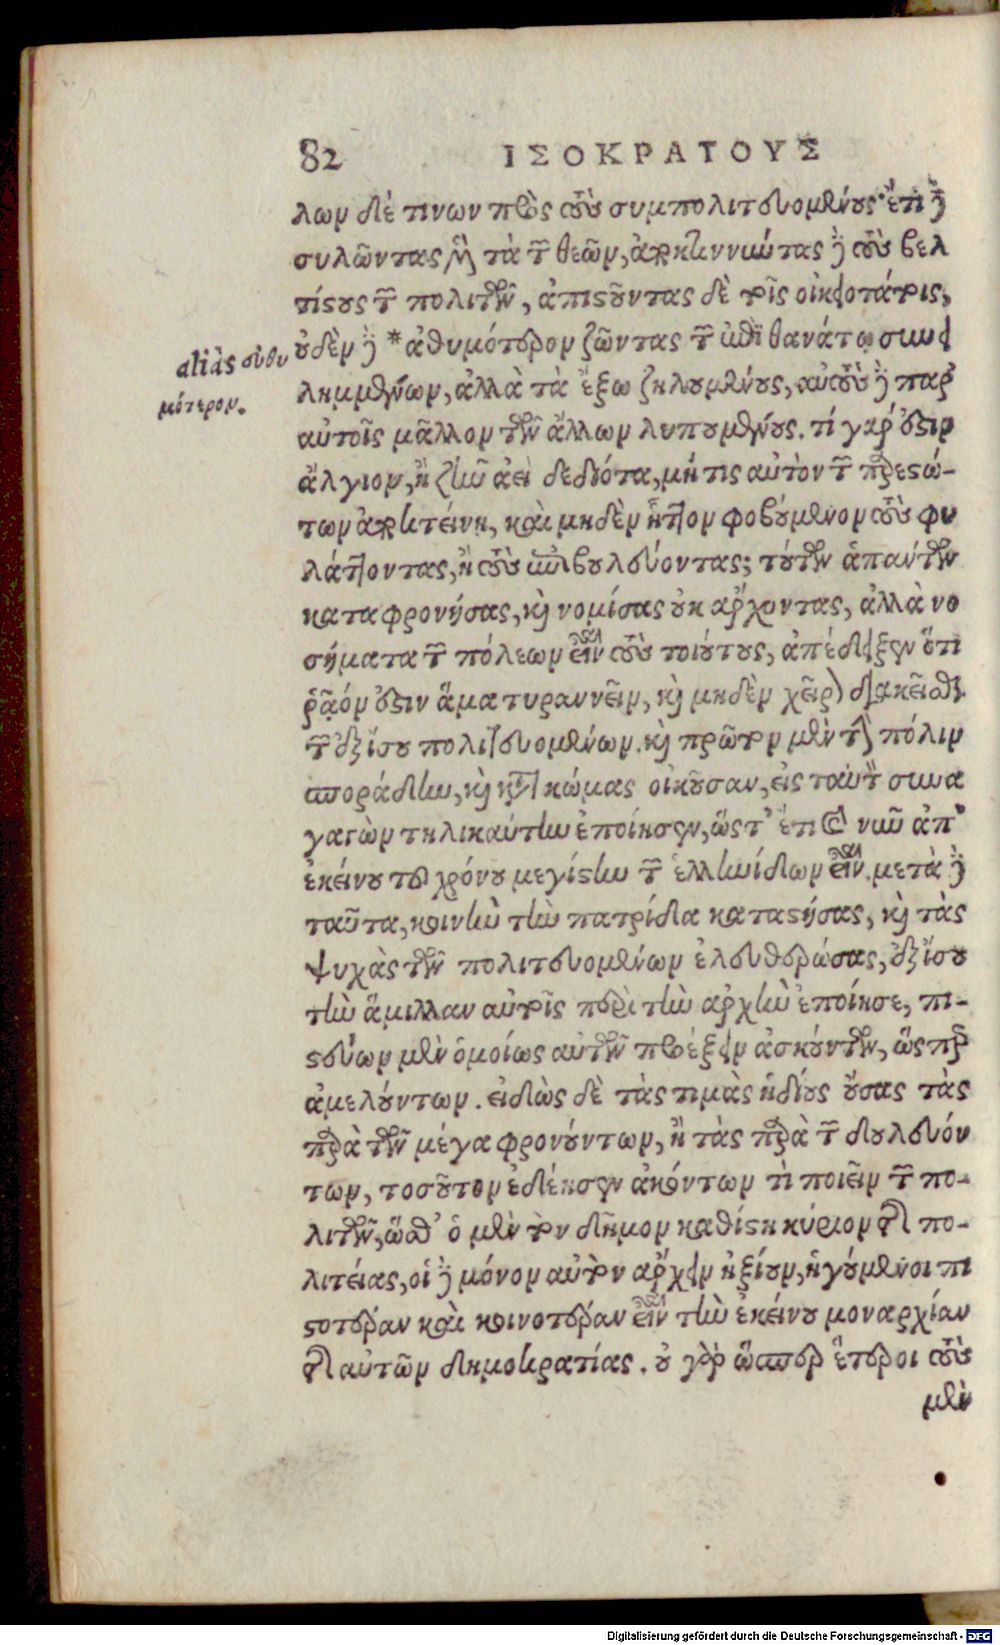 82 ΙΣΟΚΡΑΤΟΥΣ
λων δέ τινων πρὸς τοὺς συμπολιτευομένους· ἔτι δὲ
συλῶντας μὲν τὰ τῶν θεῶν, ἀποκτιννύντας δὲ τοὺς βελ
τίστους τῶν πολιτῶν, ἀπιστοῦντας δὲ τοῖς οἰκειοτάτοις,
οὐδὲν δὲ *ἀθυμότερον ζῶντας τῶν ἐπὶ θανάτῳ συνει
aliàs εὐθυ
μότερον.
λημμένων, ἀλλὰ τὰ ἔξω ζηλουμένους, αὐτοὺς δὲ παρ'
αὐτοῖς μᾶλλον τῶν ἄλλων λυπουμένους. τί γάρ ἐστιν
ἄλγιον, ἢ ζῆν ἀεὶ δεδιότα, μή τις αὐτὸν τῶν παρεστώ-
των ἀποκτείνῃ, καὶ μηδὲν ἧττον φοβούμενον τοὺς φυ
λάττοντας, ἢ τοὺς ἐπιβουλεύοντας; τούτων ἁπάντων
καταφρονήσας, καὶ νομίσας οὐκ ἄρχοντας, ἀλλὰ νο
σήματα τῶν πόλεων εἶναι τοὺς τοιούτους, ἀπέδειξεν ὅτι
ῥᾷόν ἐστιν ἅμα τυραννεῖν, καὶ μηδὲν χεῖρον διακεῖσθαι
τῶν ἐξίσου πολιτευομένων. καὶ πρῶτον μὲν τὴν πόλιν
σποράδην, καὶ κατὰ κώμας οἰκοῦσαν, εἰς ταὐτὸ συνα
γαγὼν τηλικαύτην ἐποίησεν, ὥστ' ἔτι καὶ νῦν ἀπ'
ἐκείνου τοῦ χρόνου μεγίστην τῶν ἑλληνίδων εἶναι. μετὰ δὲ
ταῦτα, κοινὴν τὴν πατρίδα καταστήσας, καὶ τὰς
ψυχὰς τῶν πολιτευομένων ἐλευθερώσας, ἐξίσου
τὴν ἅμιλλαν αὐτοῖς περὶ τὴν ἀρχὴν ἐποίησε, πι-
στεύων μὲν ὁμοίως αὐτῶν προέξειν ἀσκούντων, ὥσπερ
ἀμελούντων. εἰδὼς δὲ τὰς τιμὰς ἡδίους οὔσας τὰς
παρὰ τῶν μέγα φρονούντων, ἢ τὰς παρὰ τῶν δουλευόν
των, τοσοῦτον ἐδέησεν ἀκόντων τὶ ποιεῖν τῶν πο-
λιτῶν, ὥσθ' ὁ μὲν τὸν δῆμον καθίστη κύριον τῆς πο-
λιτείας, οἱ δὲ μόνον αὐτὸν ἄρχειν ἠξίουν, ἡγούμενοι πι
στοτέραν καὶ κοινοτέραν εἶναι τὴν ἐκείνου μοναρχίαν
τῆς αὐτῶν δημοκρατίας. οὐ γὰρ ὥσπερ ἕτεροι τοὺς
μὲν
Digitalisierung gefördert durch die Deutsche Forschungsgemeinschaft - DFG